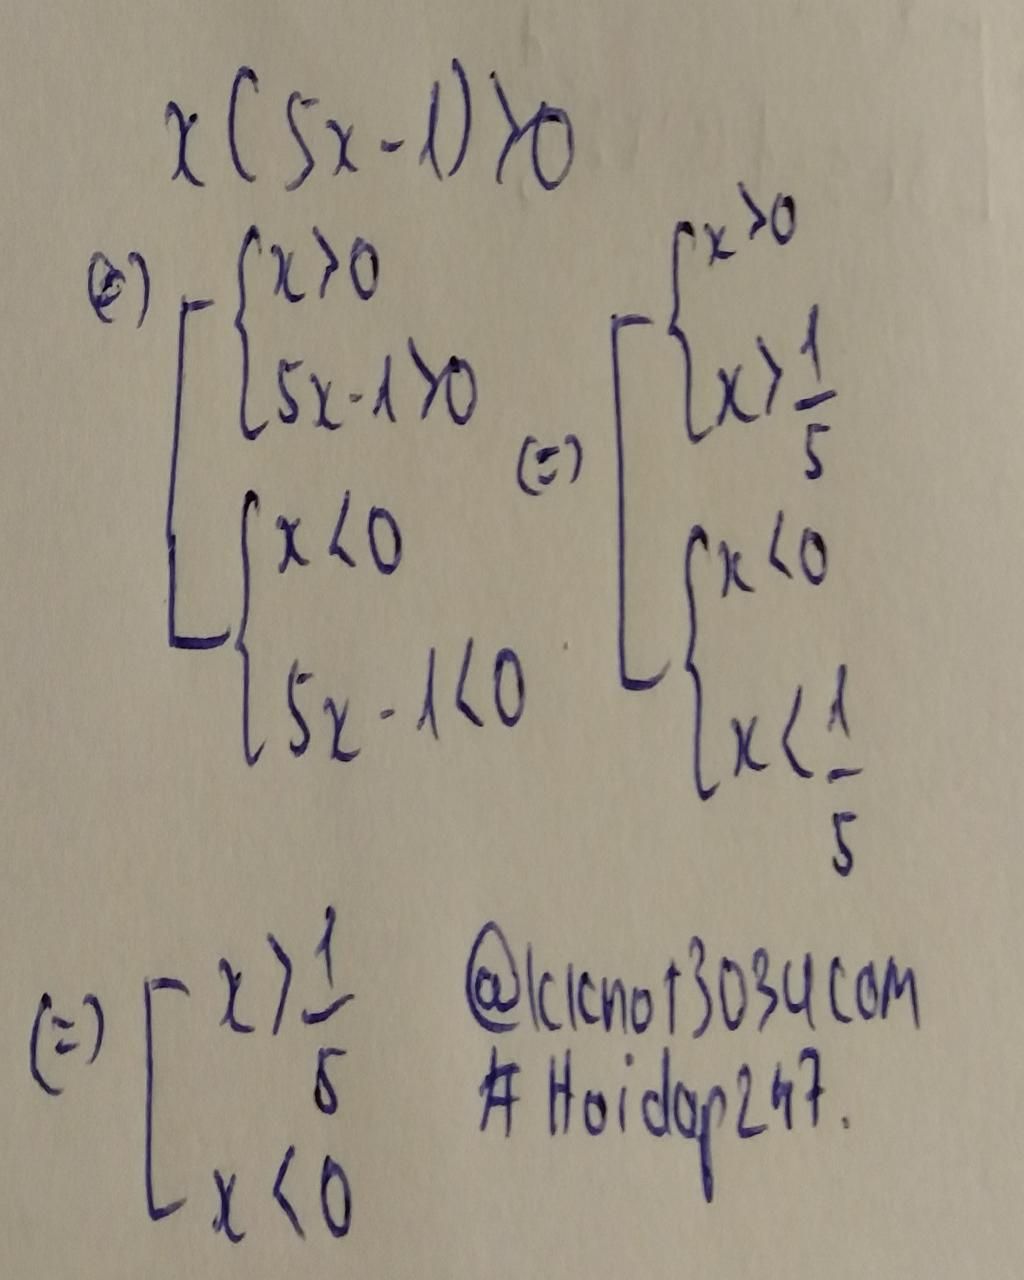 x(5x-1)>0
(=) [ { x>0
5x-1>0
{ x<0
5x-1<0
(=) [ { x>0
x>1/5
{ x<0
x<1/5
(=) [ x>1/5
x<0
@kknot3034com
#Hoidap247.